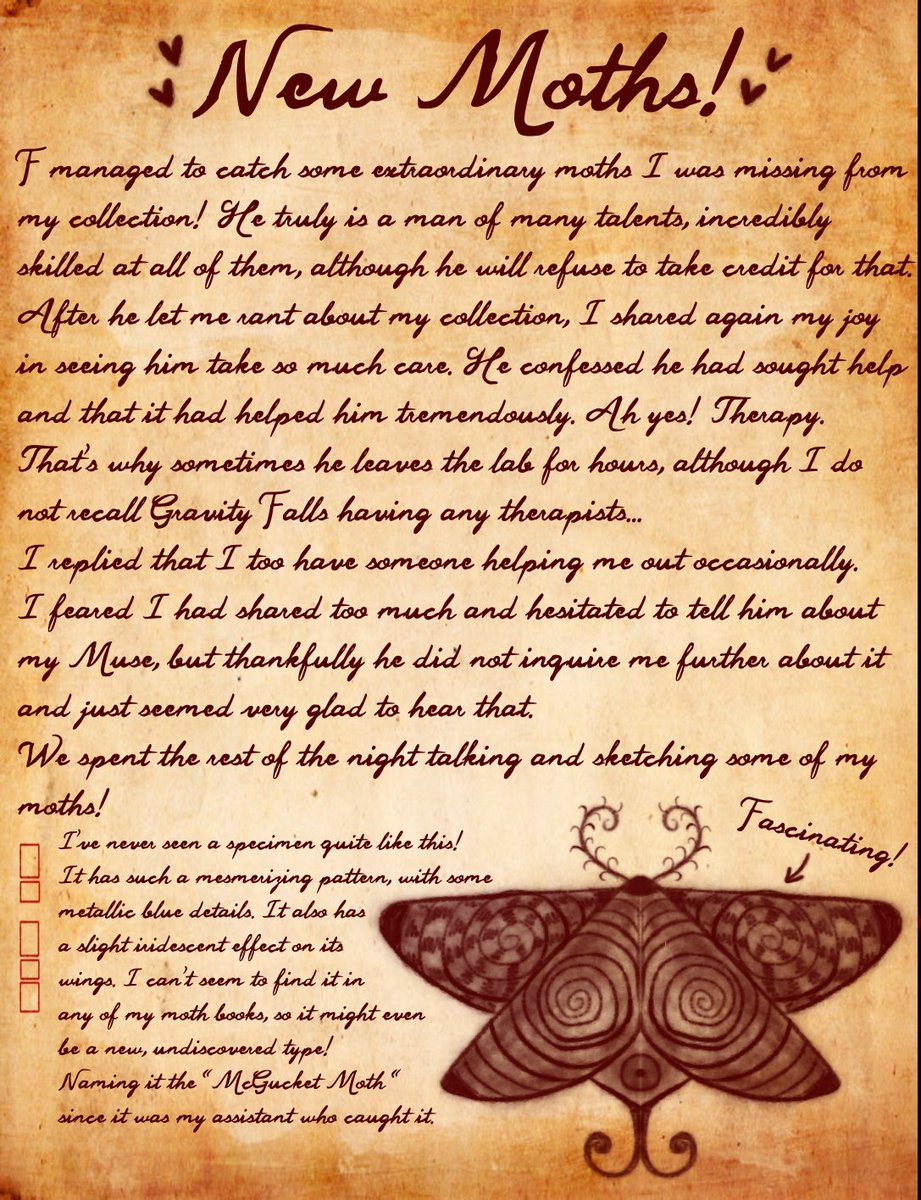 New Moths!
F managed to catch some extraordinary moths I was missing from
my collection! He truly is a man of many talents, incredibly
skilled at all of them, although he will refuse to take credit for that.
After he let me rant about my collection, I shared again my joy
in seeing him take so much care. He confessed he had sought help
and that it had helped him tremendously. Ah yes! Therapy.
That's why sometimes he leaves the lab for hours, although I do
not recall Gravity Falls having any therapists...
I replied that I too have someone helping me out occasionally.
I feared I had shared too much and hesitated to tell him about
my Muse, but thankfully he did not inquire me further about it
and just seemed very glad to hear that.
We spent the rest of the night talking and sketching some of my
moths!
Fascinating!
I've never seen a specimen quite like this!
It has such a mesmerizing pattern, with some
metallic blue details. It also has
a slight iridescent effect on its
wings. I can't seem to find it in
any of my moth books, so it might even
be a new, undiscovered type!
Naming it the "McGucket Moth"
since it was my assistant who caught it.